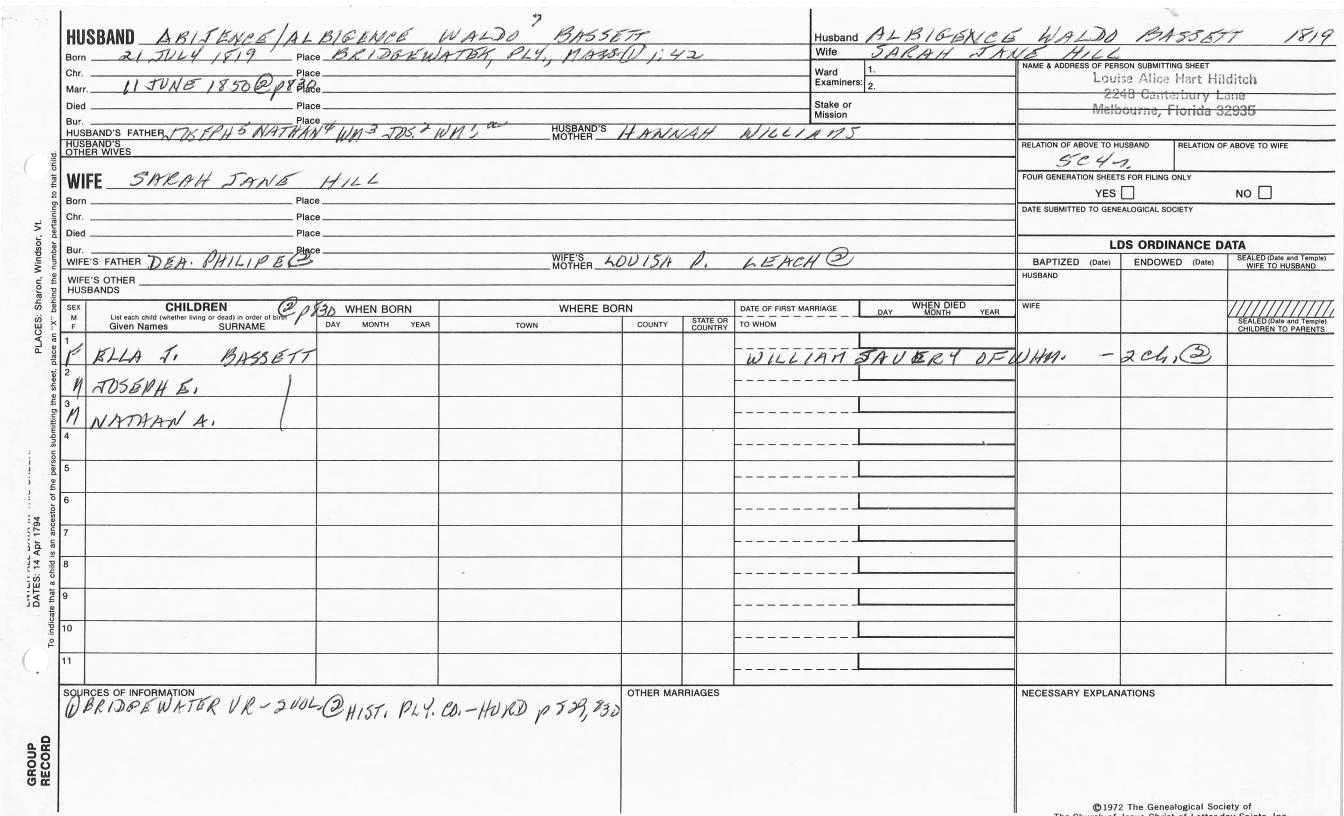 HUSBAND ABIJENCE/ALBIGENCE WALDO BASSETT
Born 21 JULY 1819 Place BRIDGEWATER, PLY., MASS① 1:42
Chr. Place
Marr. 11 JUNE 1850②p830 Place
Died Place
Bur. Place
HUSBAND'S FATHER JOSEPH5 NATHAN4 WM3 JOS.2 WM1 HUSBAND'S MOTHER HANNAH WILLIAMS
HUSBAND'S OTHER WIVES
Husband ALBIGENCE WALDO BASSETT 1819
Wife SARAH JANE HILL
Ward Examiners: 1.
2.
Stake or Mission
NAME & ADDRESS OF PERSON SUBMITTING SHEET
Louise Alice Hart Hilditch
2248 Canterbury Lane
Melbourne, Florida 32935
RELATION OF ABOVE TO HUSBAND RELATION OF ABOVE TO WIFE
5C4r.
FOUR GENERATION SHEETS FOR FILING ONLY
YES NO
DATE SUBMITTED TO GENEALOGICAL SOCIETY
WIFE SARAH JANE HILL
Born Place
Chr. Place
Died Place
Bur. Place
WIFE'S FATHER DEA. PHILIP E② WIFE'S MOTHER LOUISA P. LEACH②
WIFE'S OTHER HUSBANDS
LDS ORDINANCE DATA
BAPTIZED (Date) ENDOWED (Date) SEALED (Date and Temple) WIFE TO HUSBAND
HUSBAND
WIFE
SEALED (Date and Temple) CHILDREN TO PARENTS
SEX M F
CHILDREN ②p830
List each child (whether living or dead) in order of birth
Given Names SURNAME
WHEN BORN
DAY MONTH YEAR
WHERE BORN
TOWN COUNTY STATE OR COUNTRY
DATE OF FIRST MARRIAGE
TO WHOM
WHEN DIED
DAY MONTH YEAR
1 F ELLA J. BASSETT WILLIAM SAVERY OF WHM. - 2 ch. ②
2 M JOSEPH E.
3 M NATHAN A.
4
5
6
7
8
9
10
11
SOURCES OF INFORMATION
①BRIDGEWATER VR-2VOL②HIST. PLY. CO.-HURD p829,830
OTHER MARRIAGES
NECESSARY EXPLANATIONS
©1972 The Genealogical Society of
The Church of Jesus Christ of Latter-day Saints, Inc.
PLACES: Sharon, Windsor, Vt.
DATES: 14 Apr 1794
To indicate that a child is an ancestor of the person submitting the sheet, place an "X" behind the number pertaining to that child.
GROUP RECORD